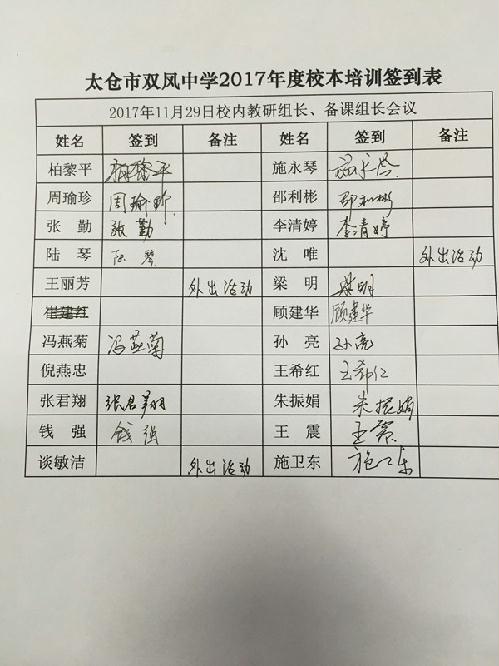 太仓市双凤中学2017年度校本培训签到表
2017年11月29日校内教研组长、备课组长会议
姓名 签到 备注 姓名 签到 备注
柏黎平 柏黎平 施永琴 施永琴
周瑜珍 周瑜珍 邵利彬 邵利彬
张 勤 张勤 李清婷 李清婷
陆 琴 陆琴 沈 唯 外出活动
王丽芳 外出活动 梁 明 梁明
崔建红 顾建华 顾建华
冯燕菊 冯燕菊 孙 亮 孙亮
倪燕忠 王希红 王希红
张君翔 张君翔 朱振娟 朱振娟
钱 强 钱强 王 震 王震
谈敏洁 外出活动 施卫东 施卫东